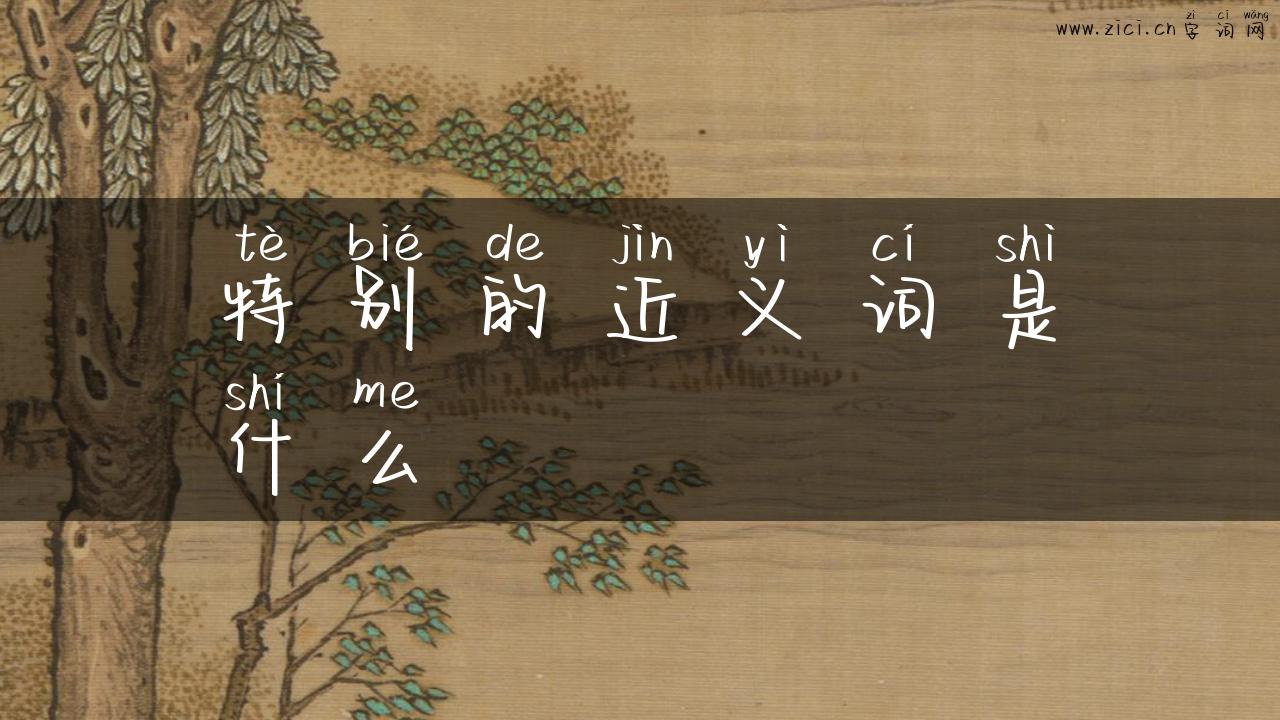 zì cí wǎng
www.zici.cn 字词网
tè bié de jìn yì cí shì
特别的近义词是
shí me
什么